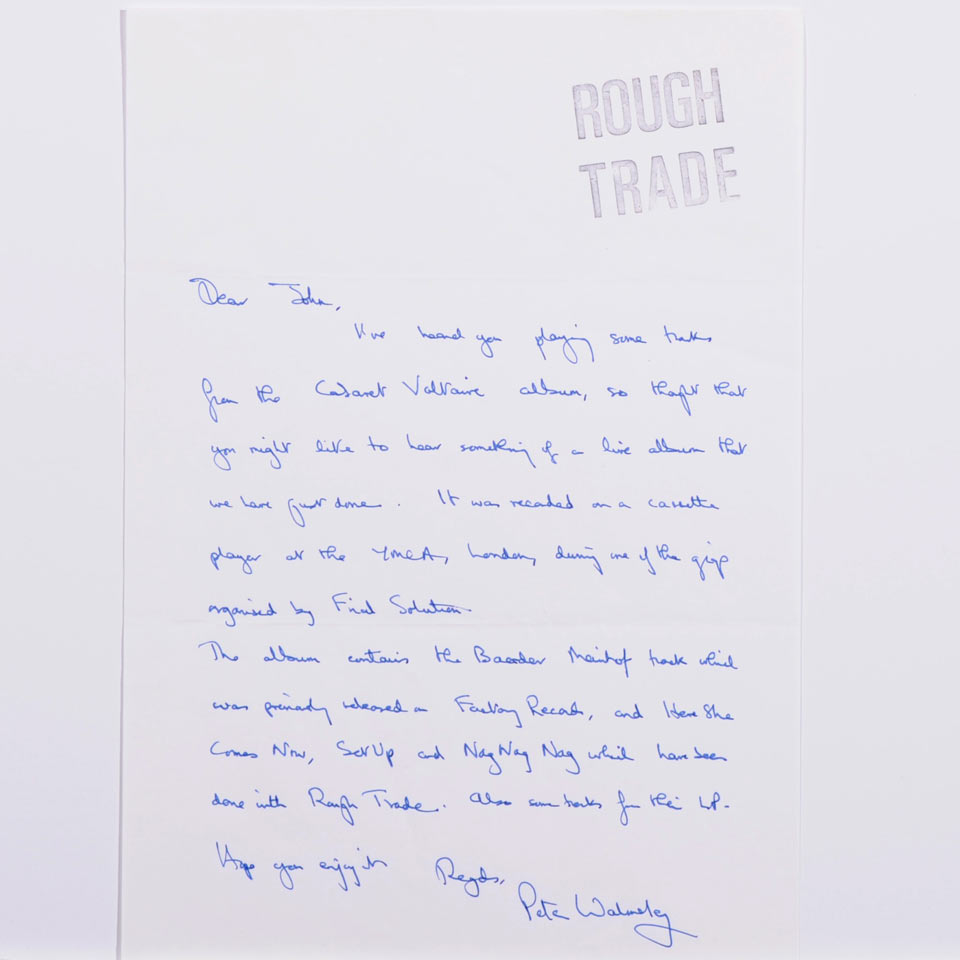 ROUGH
TRADE
Dear John,
I've heard you playing some tracks
from the Cabaret Voltaire album, so thought that
you might like to hear something of a live album that
we have just done. It was recorded on a cassette
player at the YMCA, London, during one of the gigs
organised by Final Solution.
The album contains the Baader Meinhof track which
was previously released on Factory Records, and Here She
Comes Now, Set Up and Nag Nag Nag which have been
done with Rough Trade. Also some tracks from their LP.
Hope you enjoy it
Regds,
Pete Walmsley